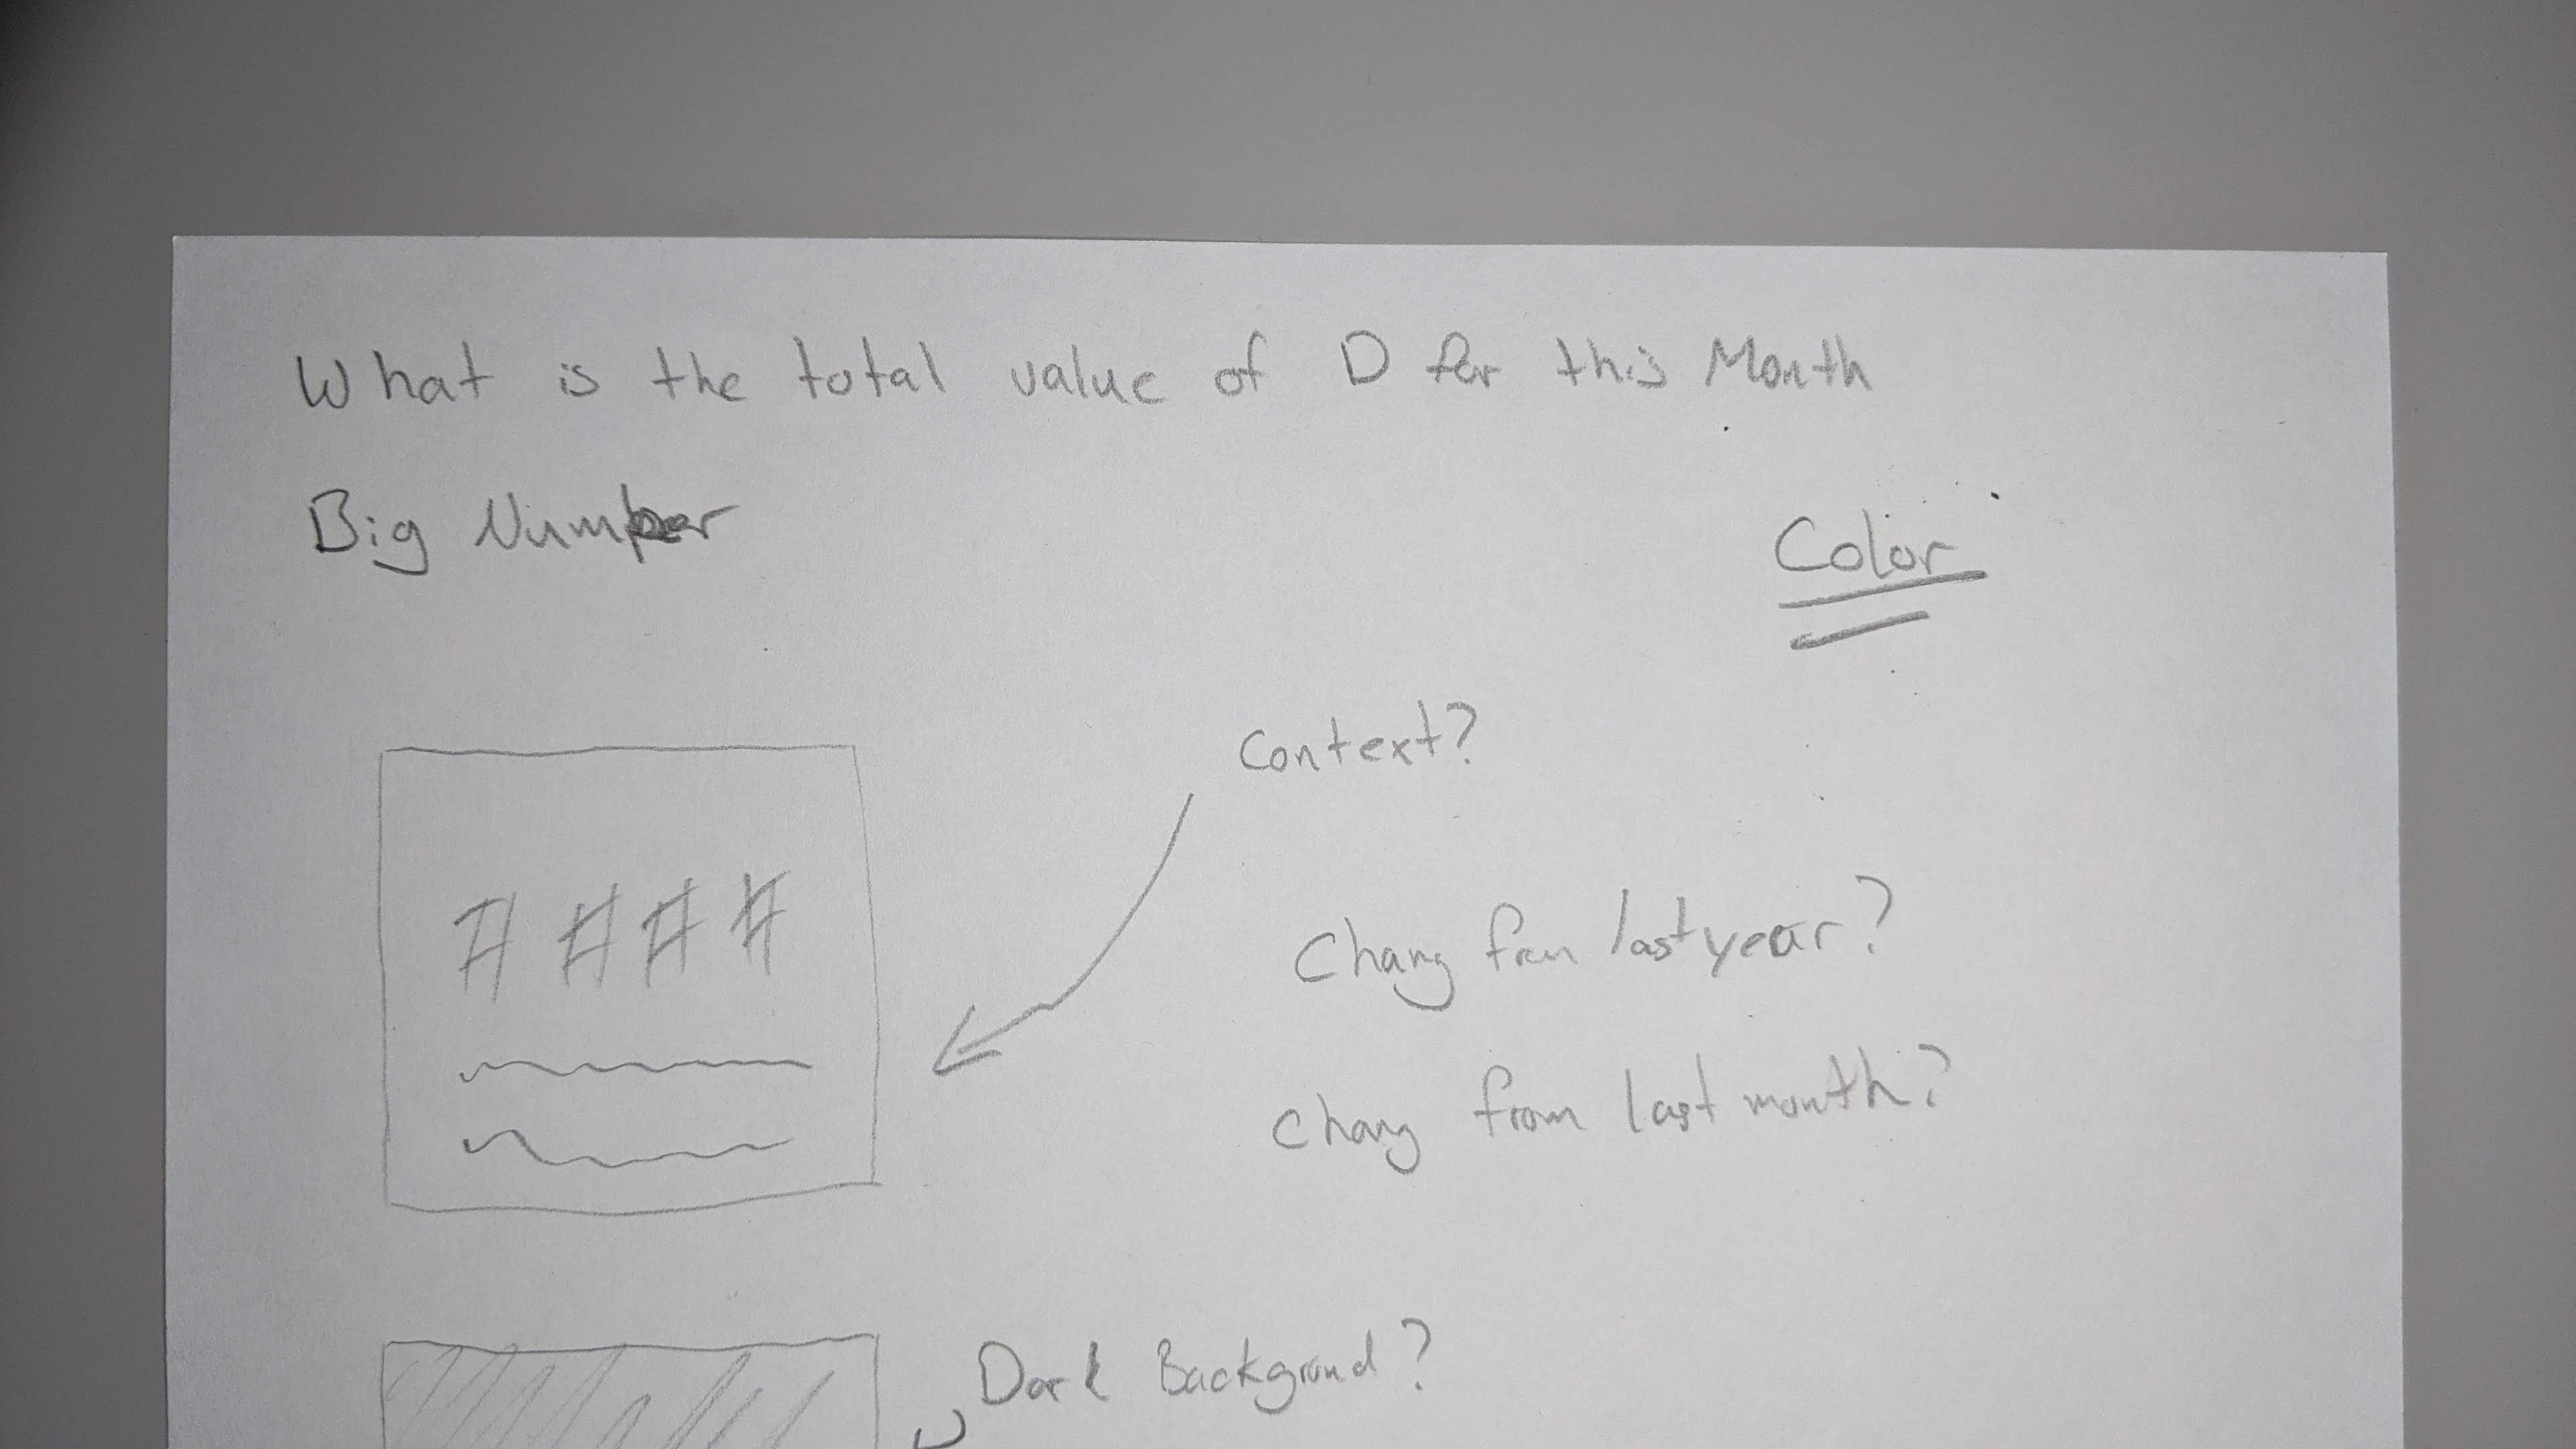 What is the total value of D for this Month
Big Number
Color
Context?
# # # #
Chang from last year?
Chang from last month?
Dark Background?